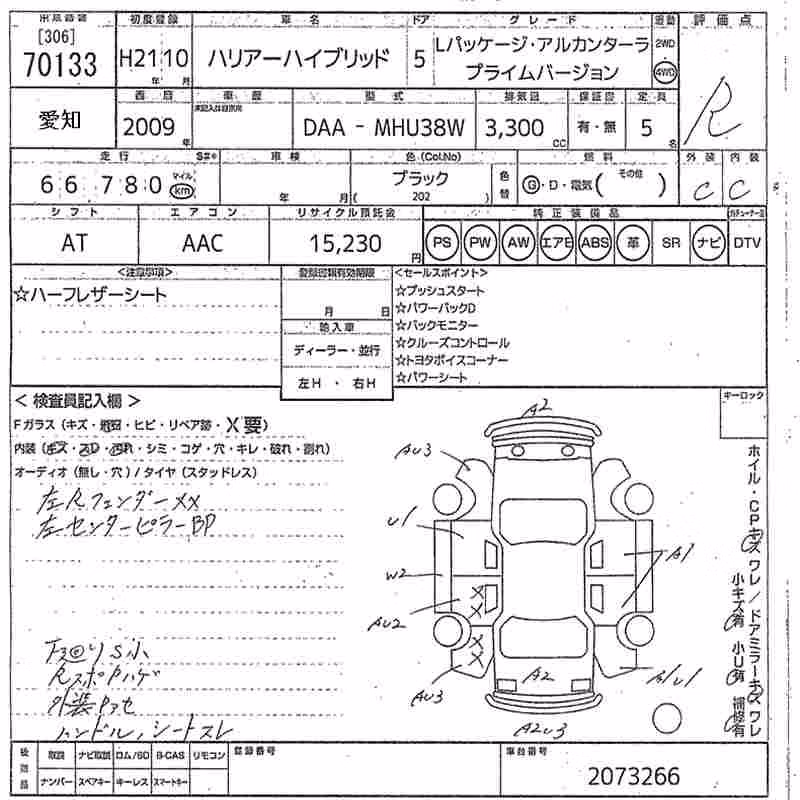 出品番号 初度登録 車名 ドア グレード 駆動 評価点
[306]
70133 H21 10 年 月 ハリアーハイブリッド 5 Lパッケージ・アルカンターラ プライムバージョン 2WD 4WD R
西暦 車歴 型式 排気量 保証書 定員
愛知 2009 年 DAA - MHU38W 3,300 CC 有・無 5 名
走行 車検 色(Col.No) 燃料 外装 内装
66 780 マイル km 年 月 ブラック ( 202 ) 色替 G・D・電気( その他 ) C C
シフト エアコン リサイクル預託金 純正装備品
AT AAC 15,230 円 PS PW AW エアB ABS 革 SR ナビ DTV
<注意事項> 登録書類有効期限 <セールスポイント>
☆ハーフレザーシート 月 日 ☆プッシュスタート
☆パワーバックD
輸入車 ☆バックモニター
ディーラー・並行 ☆クルーズコントロール
☆トヨタボイスコーナー
左H ・ 右H ☆パワーシート
< 検査員記入欄 > キーロック
Fガラス (キズ・飛石・ヒビ・リペア跡・X要)
内装 (キズ・スレ・汚れ・シミ・コゲ・穴・キレ・破れ・割れ)
オーディオ (無し・穴) / タイヤ (スタッドレス)
左Rフェンダー XX
左センターピラーBP
F廻りS小
RスポPハゲ
外装Pアセ
ハンドル,シートスレ
A2
AU3
U1
A1
W2
AU2
X
X
X
X
AU3
A2
A1U1
A2U3
ホイル・CPキズ ワレ / ドアミラーキズ ワレ
小キズ有 小U有 補修有
後商品 取説 ナビ取説 ロム/SD B-CAS リモコン 登録番号 車台番号
ナンバー スペアキー キーレス スマートキー 2073266